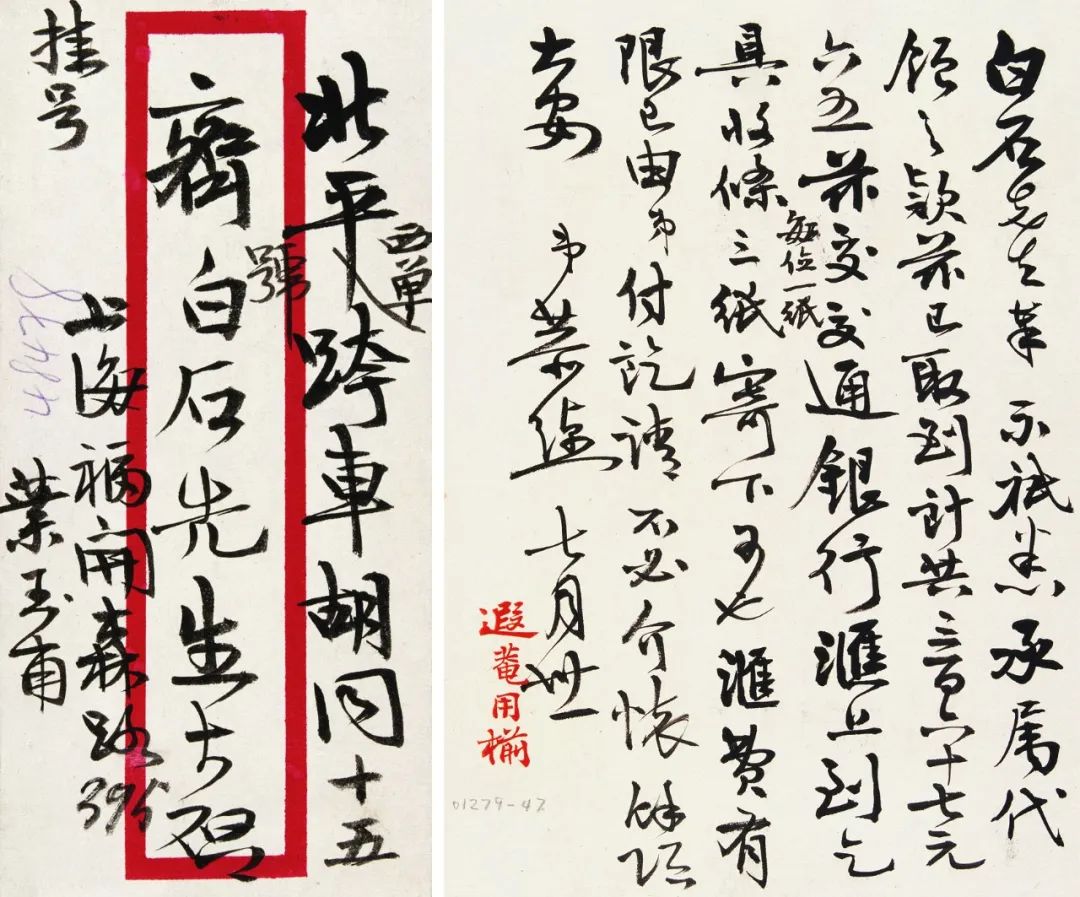 北平西單跨車胡同十五
號
齊白石先生大啟
上海福開森路
葉玉甫
挂号
白石老兄奉 示祗悉承属代
領之款茲已取到計共三百六十七元
六五茲交交通銀行滙上到乞
具收條三紙每位一紙寄下可也滙費有
限已由弟付訖請不必介懷餘頌
大安 弟葉恭綽 七月卅一
遐菴用椾
01279-47